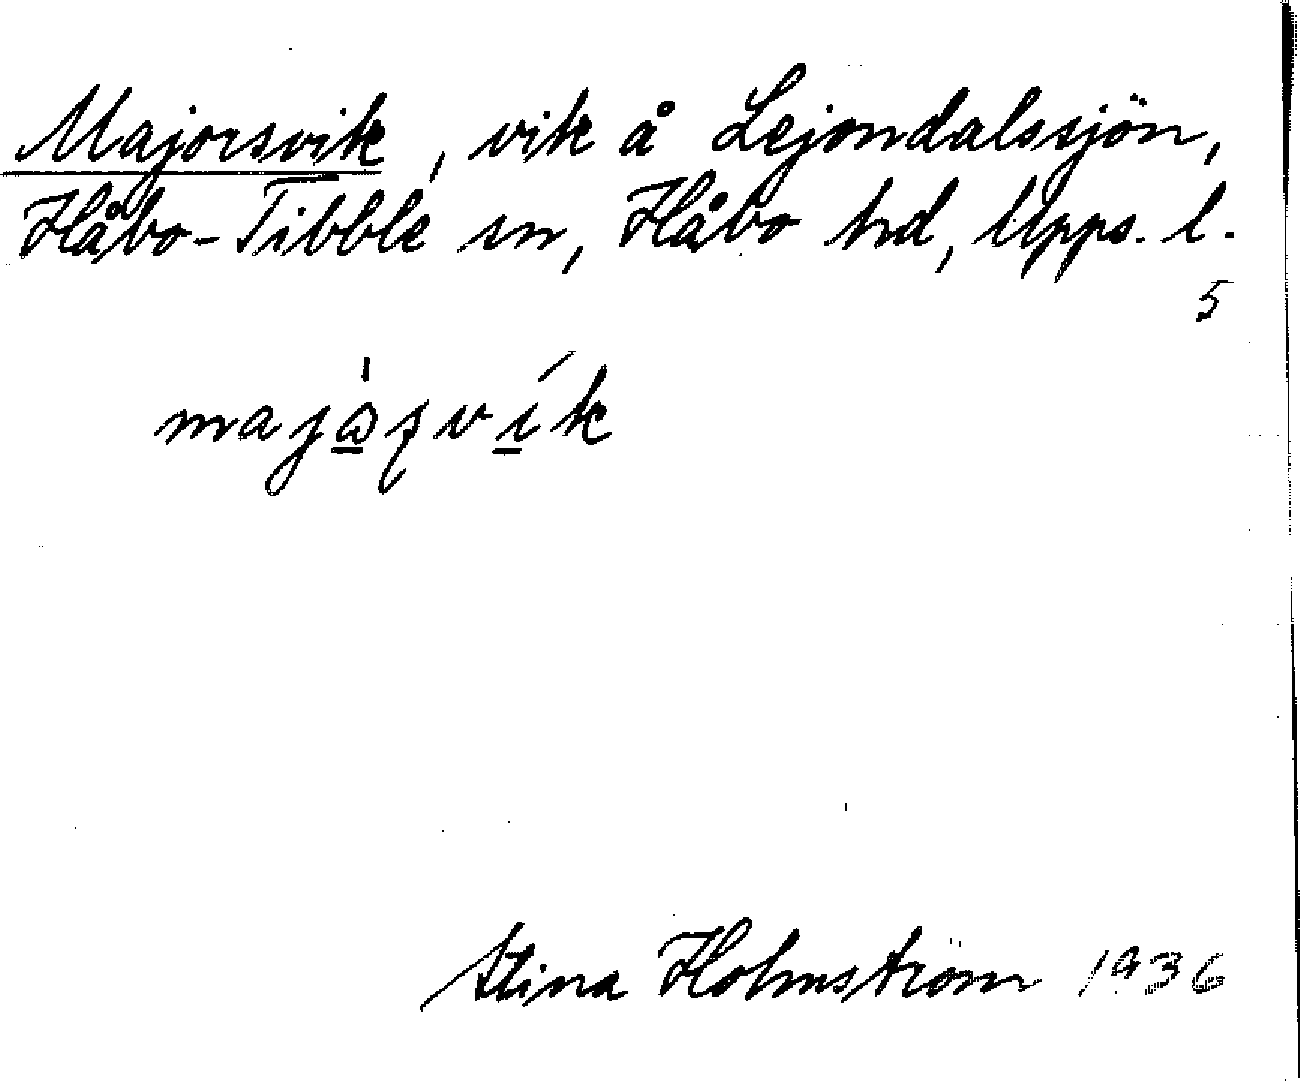 Majorsvik, vik å Lejondalssjön,
Håbo-Tibble sn, Håbo hd, Upps. l.
5
Stina Holmström 1936